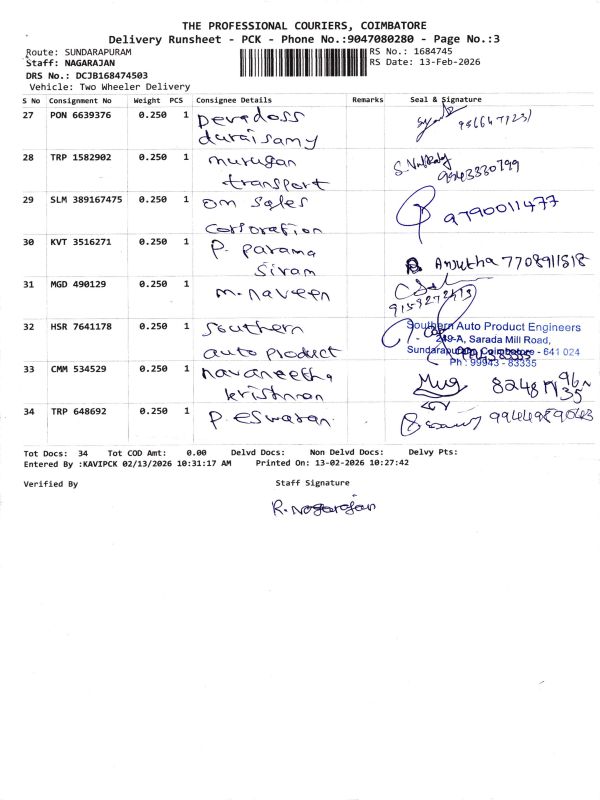 THE PROFESSIONAL COURIERS, COIMBATORE
Delivery Runsheet - PCK - Phone No.:9047080280 - Page No.:3
Route: SUNDARAPURAM
RS No.: 1684745
Staff: NAGARAJAN
RS Date: 13-Feb-2026
DRS No.: DCJB168474503
Vehicle: Two Wheeler Delivery
S No Consignment No Weight PCS Consignee Details Remarks Seal & Signature
27 PON 6639376 0.250 1 Devadoss
duraisamy
28 TRP 1582902 0.250 1 murugan
transport 9943330799
29 SLM 389167475 0.250 1 om sales 9790011477
corporation
30 KVT 3516271 0.250 1 P. parama
sivam Anjutha 7708911818
31 MGD 490129 0.250 1 m. naveen
32 HSR 7641178 0.250 1 Southern
auto product
Southern Auto Product Engineers
249-A, Sarada Mill Road,
Sundarapuram, Coimbatore - 641 024
Ph : 99943 - 83335
33 CMM 534529 0.250 1 navaneetha
krishnan
34 TRP 648692 0.250 1 P. eswaran
Tot Docs: 34 Tot COD Amt: 0.00 Delvd Docs: Non Delvd Docs: Delvy Pts:
Entered By :KAVIPCK 02/13/2026 10:31:17 AM Printed On: 13-02-2026 10:27:42
Verified By Staff Signature
R. Nagarajan